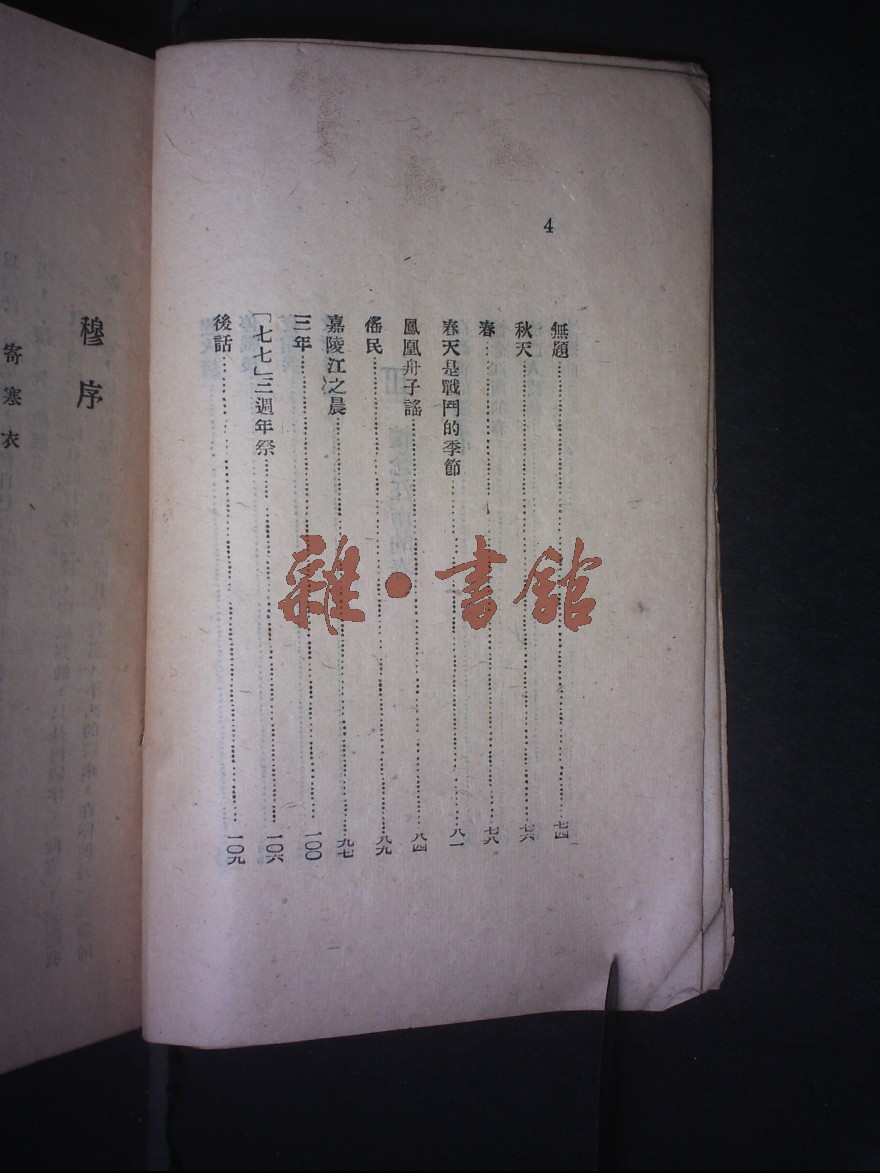 4
無題……七四
秋天……七六
春……七八
春天是戰鬥的季節……八一
鳳凰舟子謠……八四
傜民……八九
嘉陵江之晨……九七
三年……一〇〇
「七七」三週年祭……一〇六
後話……一〇九
雜·書館
穆序
寄寒衣